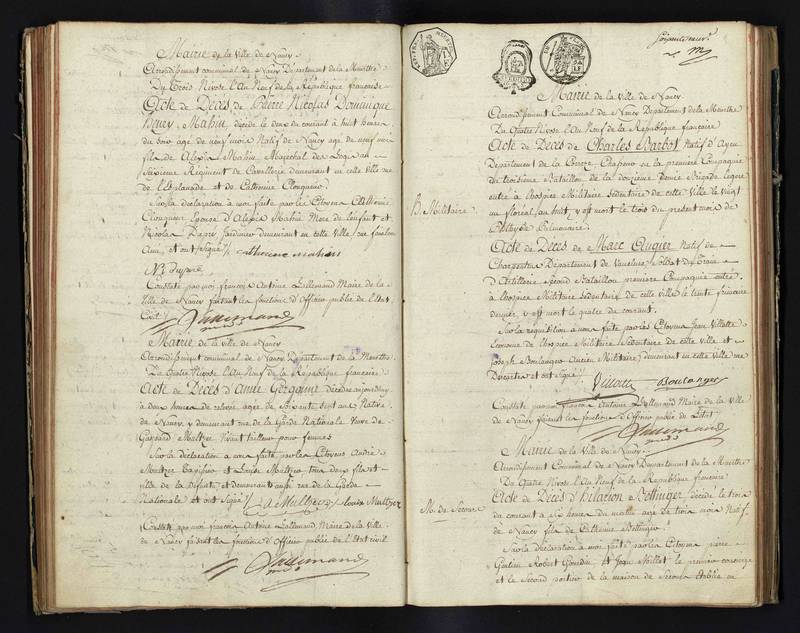 Mairie de la Ville de Nancy
Arrondissement communal de Nancy Département de la Meurthe
Du Trois Nivose l'An Neuf de la République francaise
Acte de Décès de Pierre Nicolas Dominique
Henry Mahiu décédé le deux du courant à huit heures
du soir agé de neuf mois Natif de Nancy
fils de Alexis Mahiu Marechal des Logis au
Sixieme Régiment de Cavallerie demeurant en cette Ville rue
de l'Esplanade et de Catherine
Sur la déclaration à moi faite par les Citoyens Catherine
Epouse d'Alexis Mahiu Mere de l'enfant et
Nicolas Dupré Jardinier demeurant en cette Ville
et ont signé / catherine mahiu
N. Dupré
Constaté par moi françois Antoine Lallemand Maire de la
Ville de Nancy faisant les fonctions d'Officier public de l'Etat
Civil / Lallemand
Mairie de la ville de Nancy
Arrondissement communal de Nancy Département de la Meurthe
Du Quatre Nivose l'An Neuf de la République francaise
Acte de Décès d'Anne décédée aujourd'huy
à deux heures de relevée agée de soixante sept ans Native
de Nancy y demeurant rue de la Garde Nationale Veuve de
Gaspard Multzer Vivant tailleur pour femmes
Sur la déclaration à moi faite par les Citoyens André
Multzer et Louise Multzer tous deux fils et
fille de la défunte et demeurant aussi rue de la Garde
Nationale et ont signé / A Multzer louise Multzer
Constaté par moi françois Antoine Lallemand Maire de la Ville
de Nancy faisant les fonctions d'Officier public de l'Etat civil
Lallemand
soixante neuf
Mairie de la Ville de Nancy
Arrondissement Communal de Nancy Département de la Meurthe
Du Quatre Nivose l'An Neuf de la République francaise
Acte de Décès de Charles Barbot Natif d'Ayen
Département de la Correze Chasseur à la premiere Compagnie
du troisieme Bataillon de la douzieme demie Brigade légere
entré à l'hospice Militaire sédentaire de cette Ville le Vingt
un floreal an huit, y est mort le trois du present mois de
Phtysie Pulmonaire.
H. Militaire
Acte de Décès de Marc Augier Natif de
Charpentras Département de Vaucluse, Soldat du Train
d'Artillerie second Bataillon premiere Compagnie entré
à l'hospice Militaire sédentaire de cette Ville le trente frimaire
dernier, y est mort le quatre du courant.
Sur la réquisition à nous faite par les Citoyens Jean Villatte
Econome de l'hospice Militaire sédentaire de cette ville et
Joseph Boulangier Ancien Militaire, demeurant en cette Ville rue
et ont signé / Villatte Boulangier
Constaté par moi francois Antoine Lallemand Maire de la Ville
de Nancy faisant les fonctions d'Officier public de l'Etat
Lallemand
Mairie de la Ville de Nancy
Arrondissement Communal de Nancy Département de la Meurthe
Du Quatre Nivose l'An Neuf de la République francaise
Acte de Décès d'Hilarion Bettinger décédé le trois
du courant à six heures du matin agé de trois mois Natif
de Nancy fils de Catherine Bettinger
M. de Secours
Sur la déclaration à moi faite par les Citoyens pierre
Robert Gourdin et Jean Millet le premier concierge
et le second portier de la maison de Secours établie en